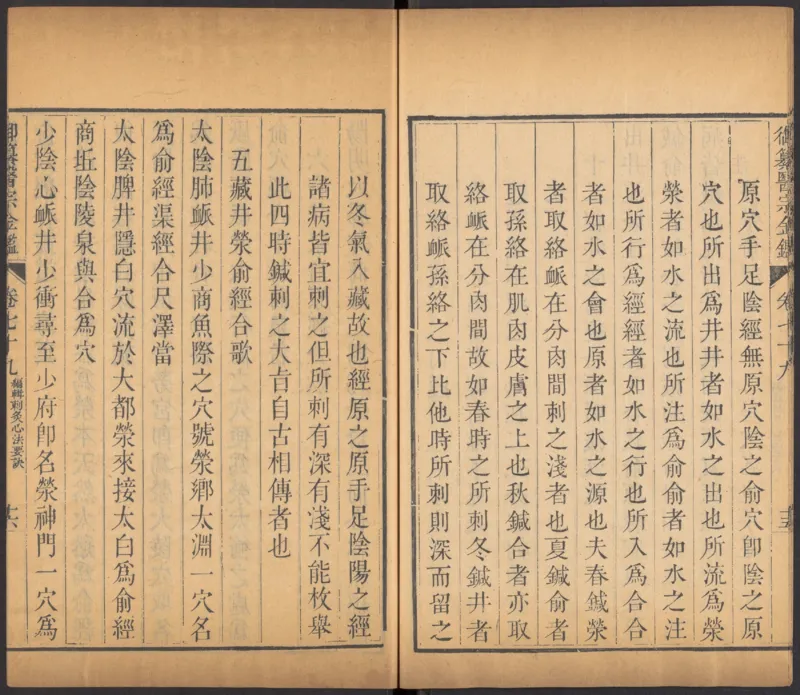 御纂醫宗金鑑
卷七十九
十五
原穴手足陰經無原穴陰之俞穴卽陰之原
穴也所出爲井井者如水之出也所流爲滎
滎者如水之流也所注爲俞俞者如水之注
也所行爲經經者如水之行也所入爲合合
者如水之會也原者如水之源也夫春鍼滎
者取絡衇在分肉間刺之淺者也夏鍼俞者
取孫絡在肌肉皮膚之上也秋鍼合者亦取
絡衇在分肉間故如春時之所刺冬鍼井者
取絡衇孫絡之下比他時所刺則深而留之
以冬氣入藏故也經原之原手足陰陽之經
諸病皆宜刺之但所刺有深有淺不能枚舉
此四時鍼刺之大旨自古相傳者也
五藏井滎俞經合歌
太陰肺衇井少商魚際之穴號滎鄉太淵一穴名
爲俞經渠經合尺澤當
太陰脾井隱白穴流於大都滎來接太白爲俞經
商坵陰陵泉與合爲穴
少陰心衇井少衝尋至少府卽名滎神門一穴爲
御纂醫宗金鑑
卷七十九
編輯刺灸心法要訣
十六